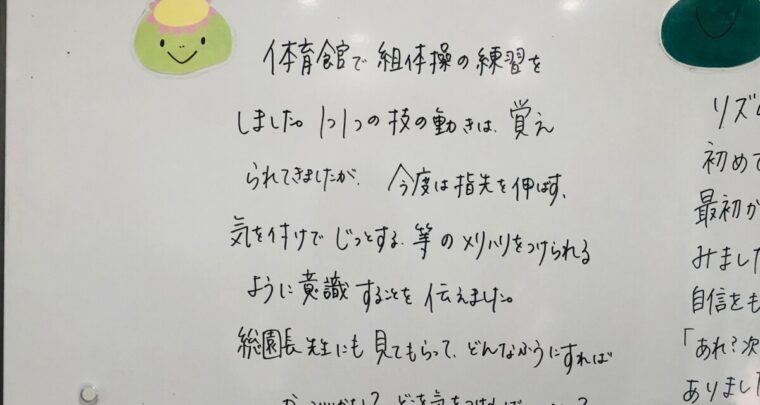 体育館で組体操の練習を
しました。1つ1つの技の動きは、覚え
られてきましたが、今度は指先を伸ばす、
気を付けでじっとする、等のメリハリをつけられる
ように意識することを伝えました。
総園長先生にも見てもらって、どんなふうにすれば
リズム
初めて
最初か
みました
自信をも
「あれ?次
ありました